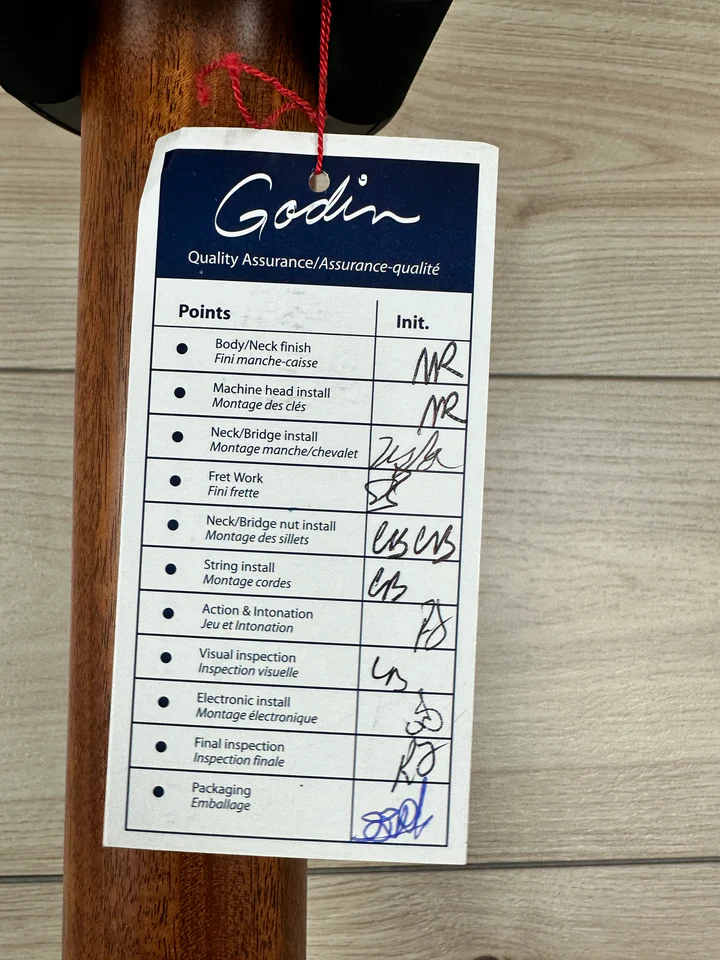 Godin
Quality Assurance/Assurance-qualité
Points Init.
Body/Neck finish MR
Fini manche-caisse
Machine head install MR
Montage des clés
Neck/Bridge install
Montage manche/chevalet
Fret Work
Fini frette
Neck/Bridge nut install
Montage des sillets
String install
Montage cordes
Action & Intonation
Jeu et Intonation
Visual inspection
Inspection visuelle
Electronic install
Montage électronique
Final inspection
Inspection finale
Packaging
Emballage